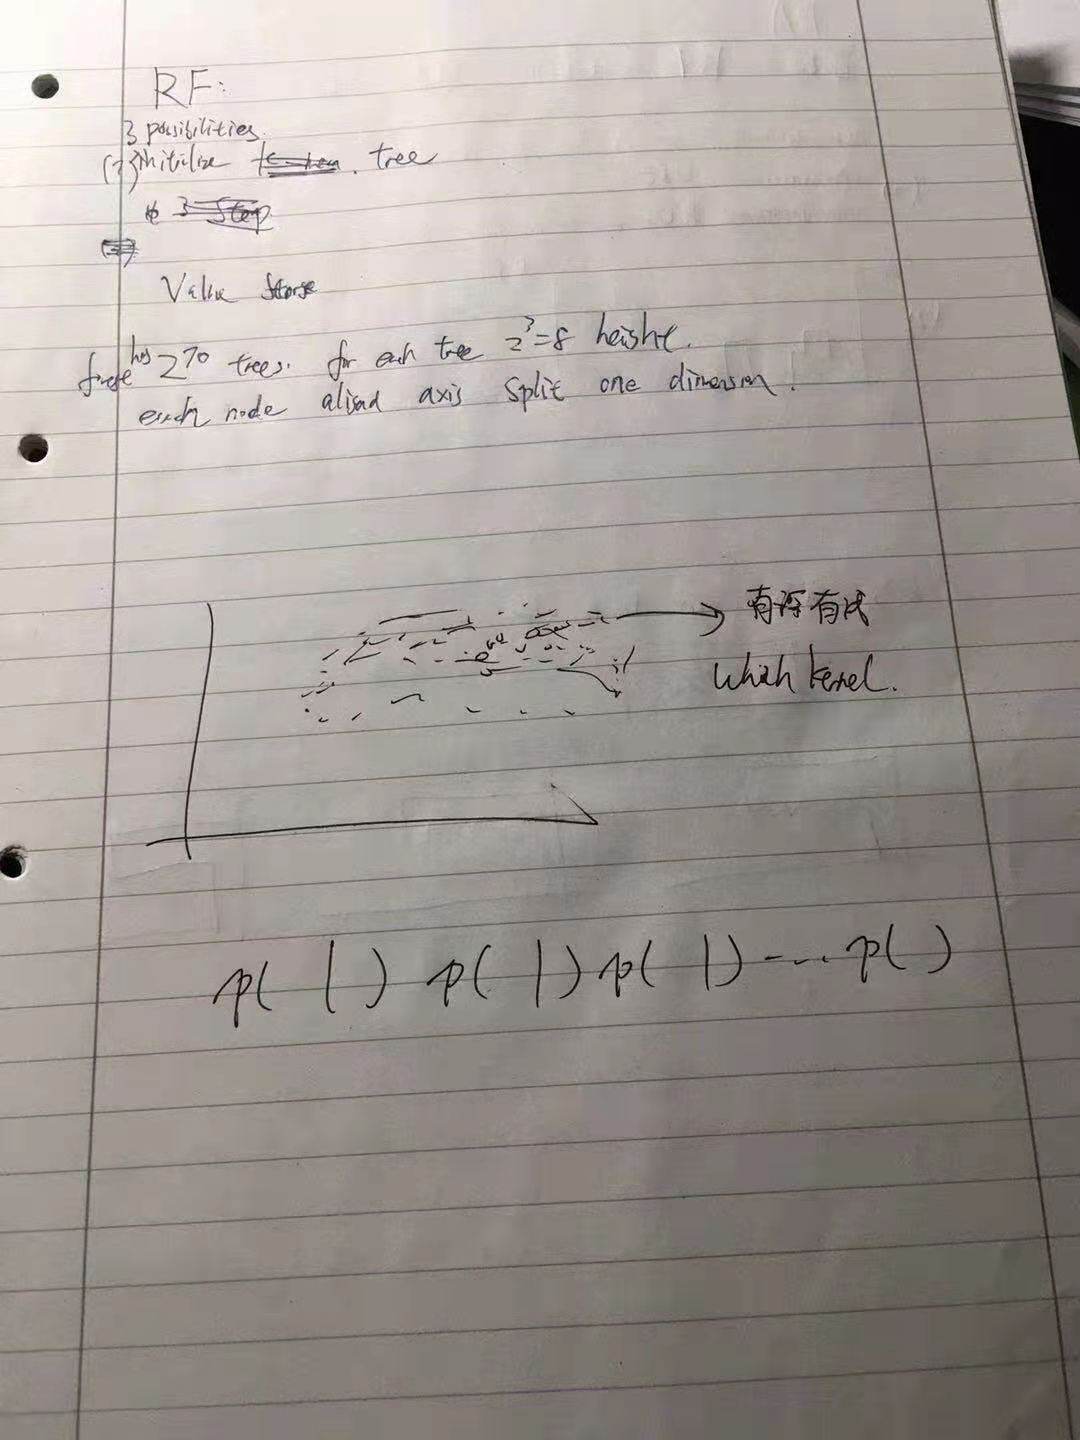 RF:
3 possibilities.
(1) initialize tree
3 step
Value store
forest has 270 trees. for each tree 2³=8 height.
each node alisad axis split one dimension.
有深有浅
which kernel.
p( | ) p( | ) p( | ) ---- p( )